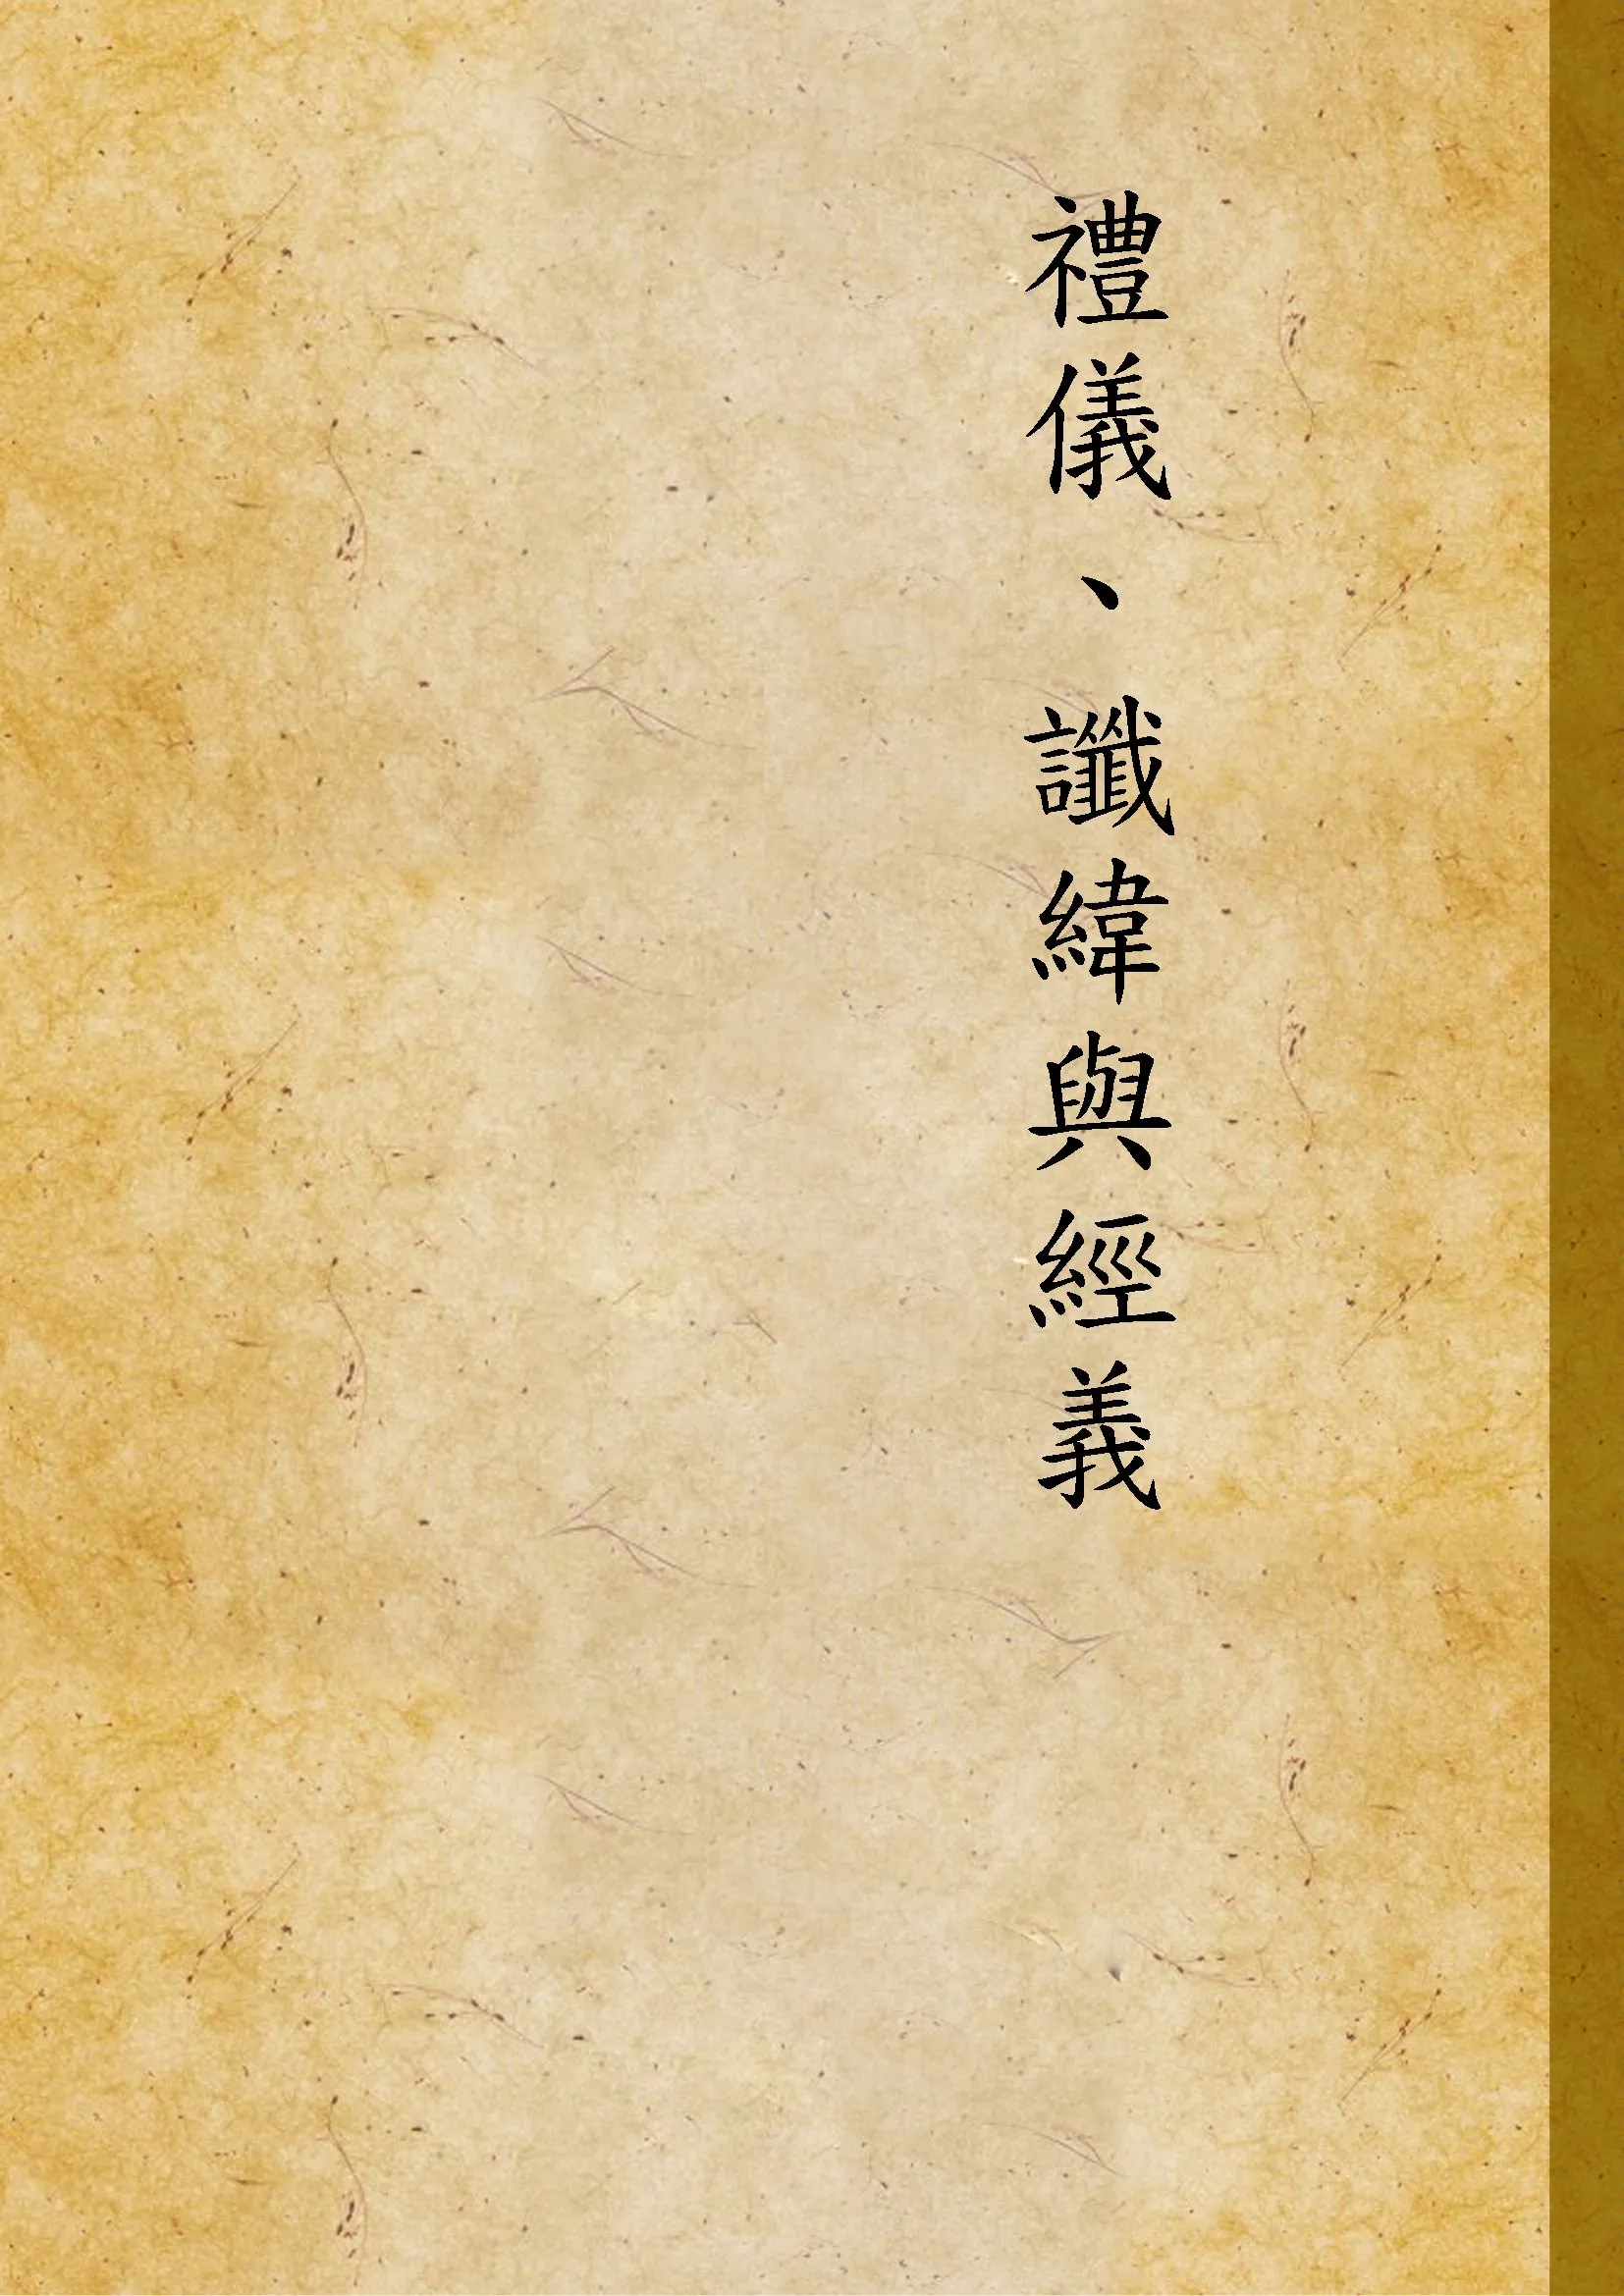 禮儀、讖緯與經義